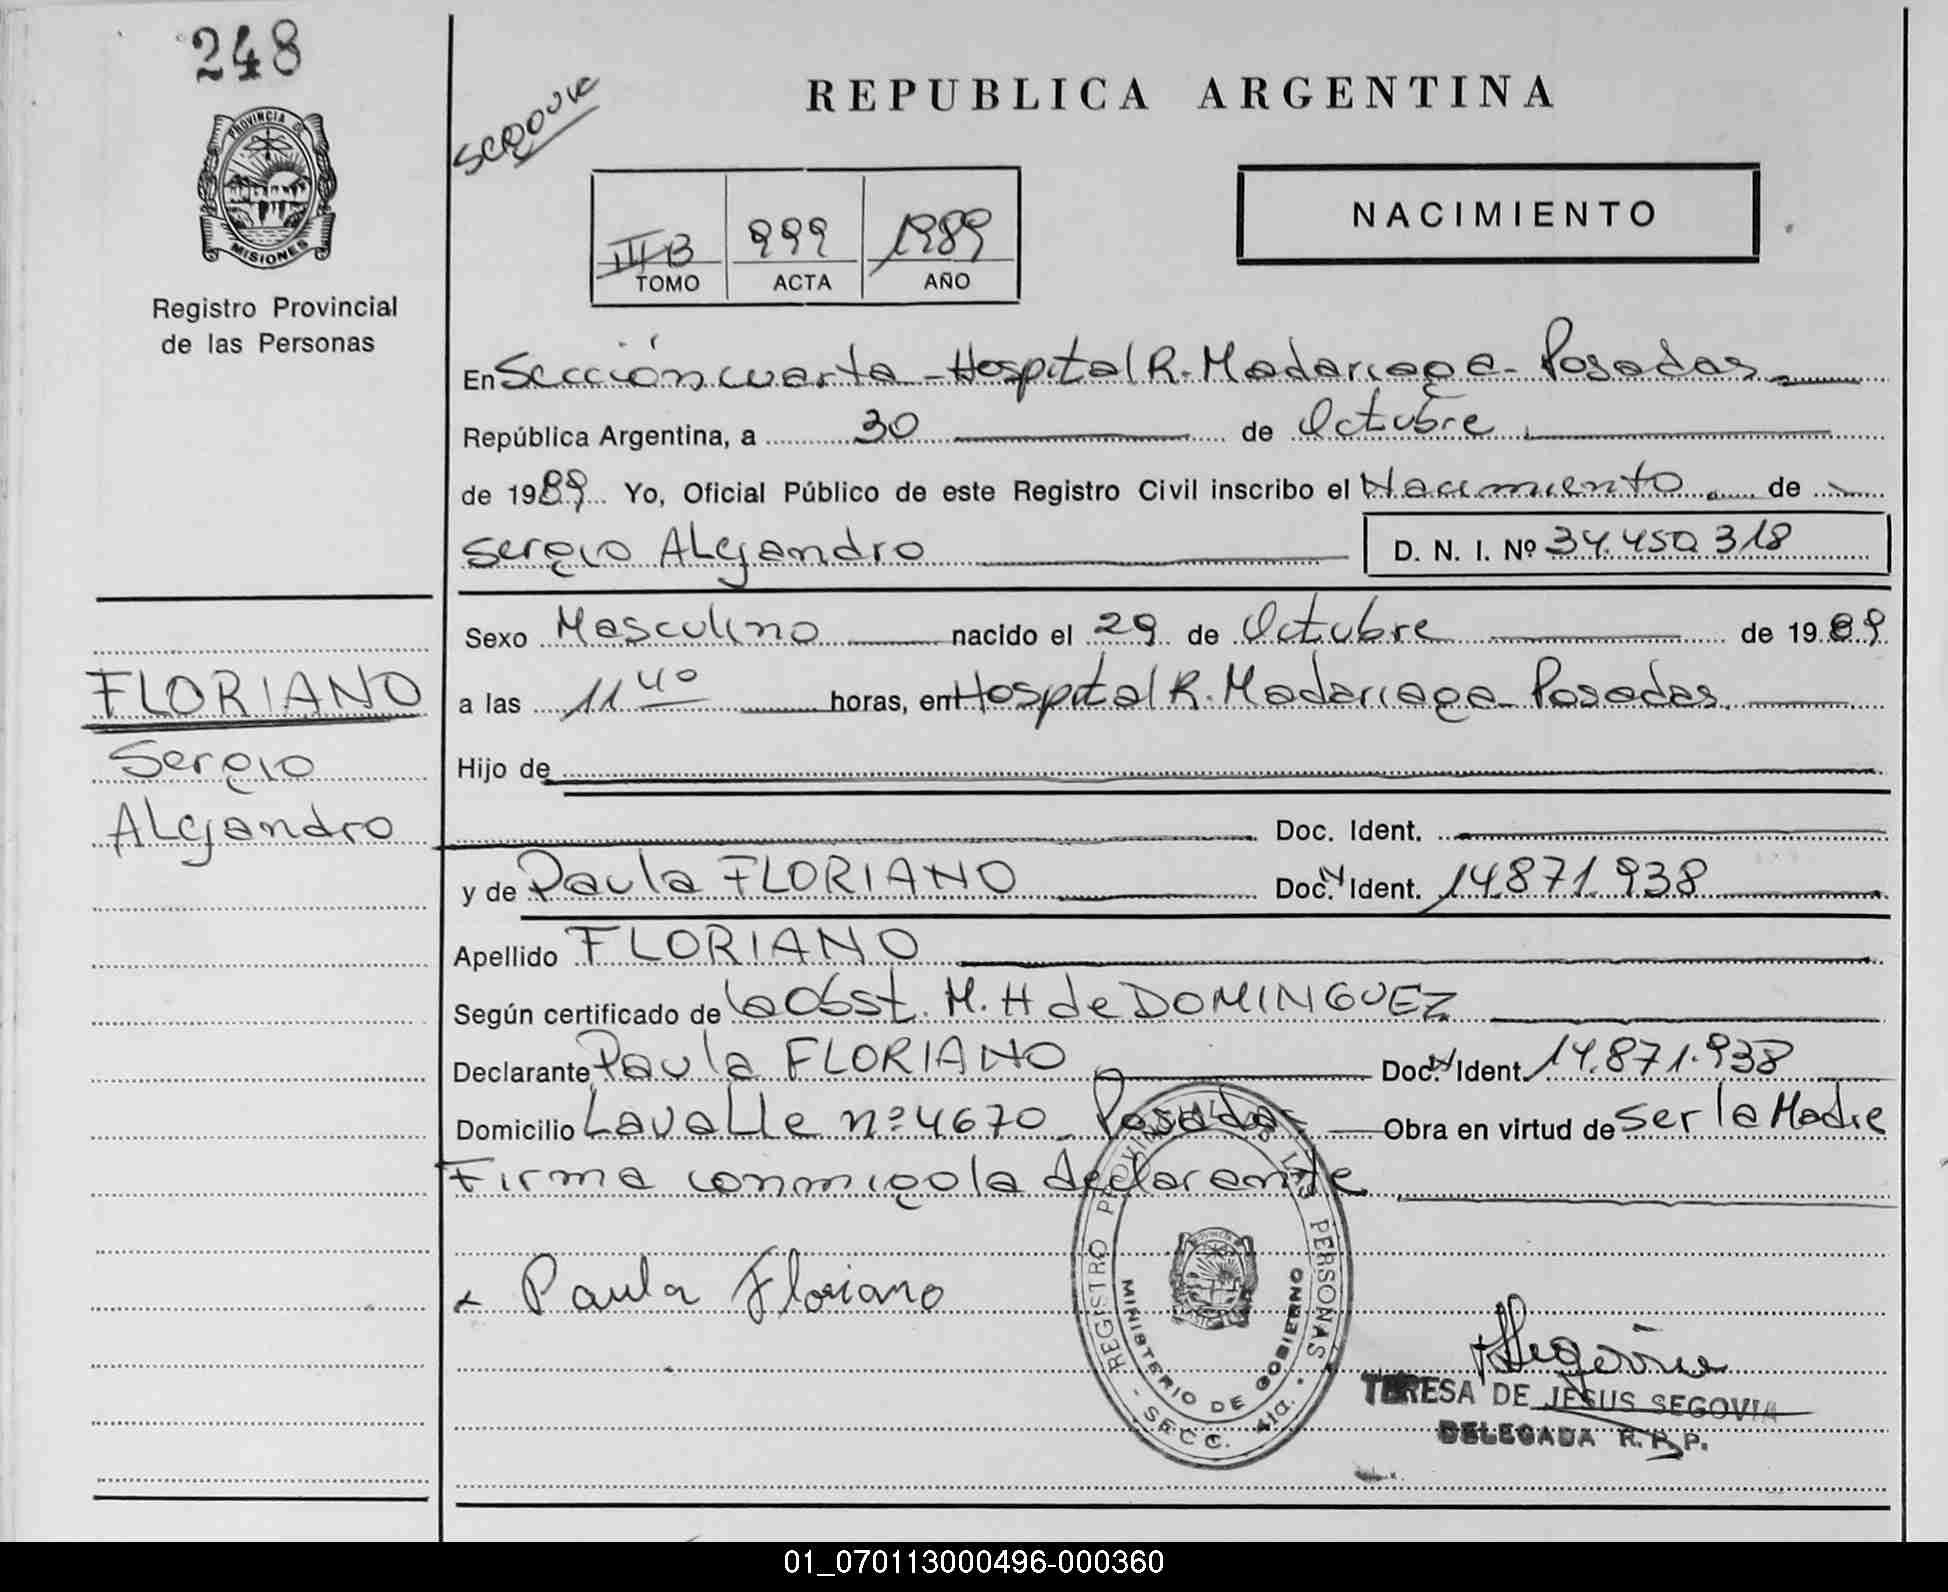 248
PROVINCIA DE
MISIONES
Registro Provincial
de las Personas
FLORIANO
Sergio
Alejandro
REPUBLICA ARGENTINA
NACIMIENTO
III B 999 1989
TOMO ACTA AÑO
En Sección cuarta - Hospital R. Madariaga - Posadas
República Argentina, a 30 de Octubre
de 1989 Yo, Oficial Público de este Registro Civil inscribo el Nacimiento de
Sergio Alejandro D. N. I. Nº 34.450.318
Sexo Masculino nacido el 29 de Octubre de 1989
a las 11 40 horas, en Hospital R. Madariaga - Posadas
Hijo de
Doc. Ident.
y de Paula FLORIANO Doc. N Ident. 14.871.938
Apellido FLORIANO
Según certificado de la Obst. M. H de DOMINGUEZ
Declarante Paula FLORIANO Doc. N Ident. 14.871.938
Domicilio Lavalle nº 4670 - Posadas - Obra en virtud de ser la Madre
Firma conmigo la declarante
x Paula Floriano
REGISTRO PROVINCIAL DE LAS PERSONAS
MINISTERIO DE GOBIERNO
- SECC. 4ta. -
Segovia
TERESA DE JESUS SEGOVIA
DELEGADA R. P. P.
01_070113000496-000360